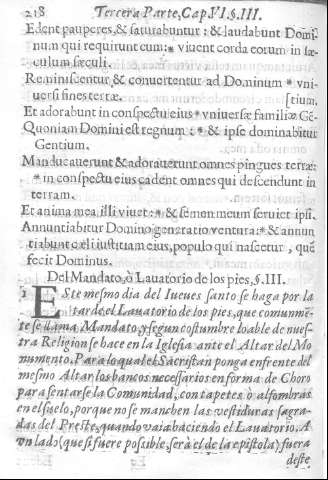 218 Tercera Parte, Cap. VI. §. III.
Edent pauperes, & saturabuntur: & laudabunt Domi-
num qui requirunt eum: * viuent corda eorum in sæ-
culum sæculi.
Reminiscentur, & conuertentur ad Dominum * vni-
uersi fines terræ. [tium.
Et adorabunt in conspectu eius * vniuersæ familiæ Gē-
Quoniam Domini est regnum: * & ipse dominabitur
Gentium.
Manducauerunt, & adorauerunt omnes pingues terræ:
* in conspectu eius cadent omnes qui descendunt in
terram.
Et anima mea illi viuet: * & semen meum seruiet ipsi.
Annuntiabitur Domino generatio ventura: * & annun
tiabunt cæli iustitiam eius, populo qui nascetur, quē
fecit Dominus.
Del Mandato, ò Lauatorio de los pies, §. III.
1 ESte mesmo dia del Iueues santo se haga por la
tarde el Lauatorio de los pies, que comunmē-
te se llama, Mandato, y segun costumbre loable de nues-
tra Religion se hace en la Iglesia ante el Altar del Mo
numento. Para lo qual el Sacristan ponga enfrente del
mesmo Altar los bancos necessarios en forma de Choro
para sentarse la Comunidad, con tapetes ò alfombras
en el suelo, porque no se manchen las vestiduras sagra-
das del Preste, quando vaia haciendo el Lauatorio. A
vn lado (que si fuere possible, serà el de la epistola) fuera
deste